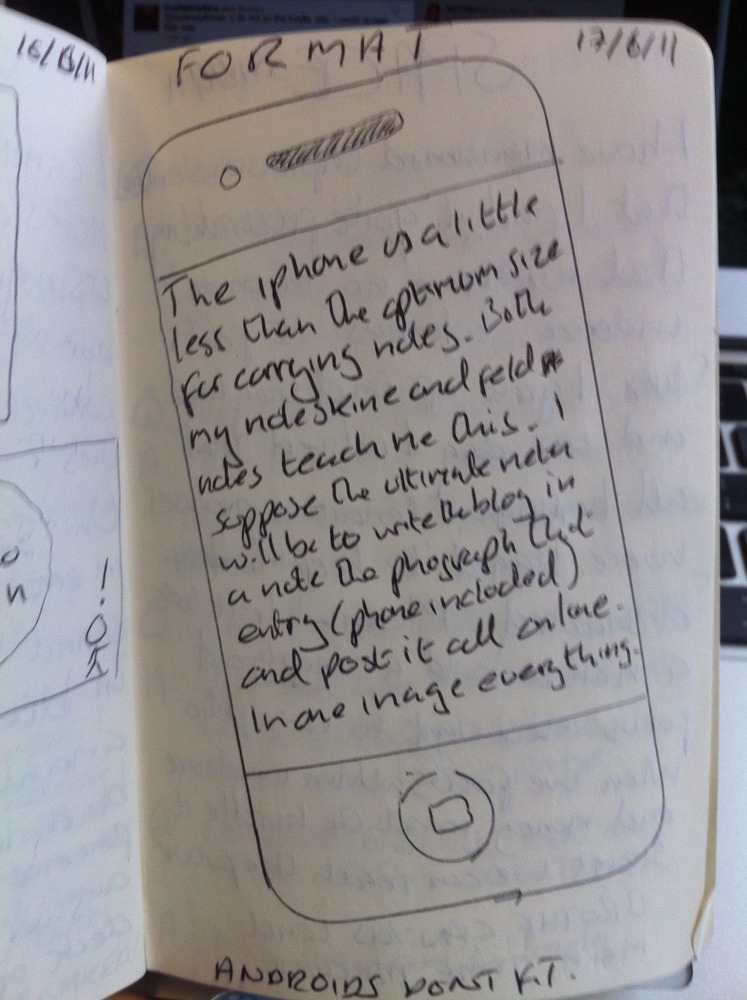 16/6/11
FORMAT
17/6/11
The iphone is a little
less than the optimum size
for carrying notes. Both
my noteskine and field
notes teach me this. I
suppose the ultimate
will be to write the blog in
a note the phograph that
entry (phone included)
and post it all online.
In one image everything.
ANDROIDS DONT FIT.